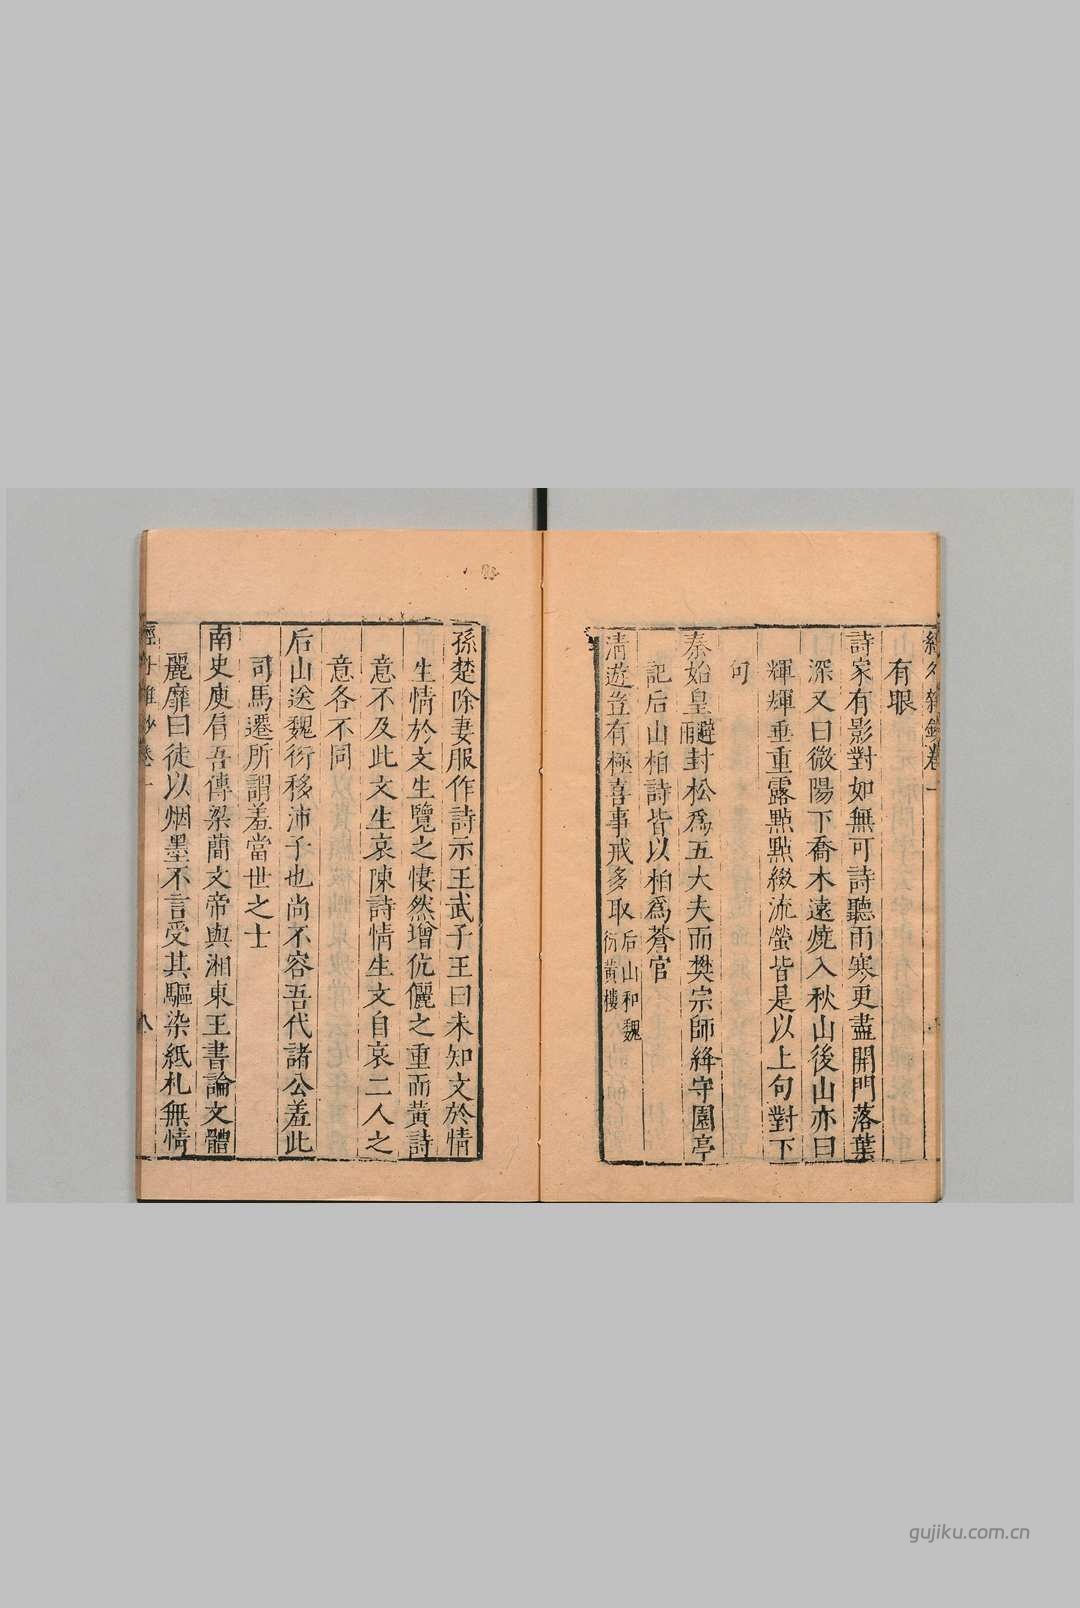 經外雜鈔卷一
有眼
詩家有影對如無可詩聽雨寒更盡開門落葉
深又曰微陽下喬木遠燒入秋山後山亦曰
輝輝垂重露點點綴流螢皆是以上句對下
句
秦始皇避雨封松爲五大夫而樊宗師絳守園亭
記后山柏詩皆以柏爲蒼官
清遊豈有極喜事戒多取后山和魏
衍黄樓
孫楚除妻服作詩示王武子王曰未知文於情
生情於文生覽之悽然增伉儷之重而黃詩
意不及此文生哀陳詩情生文自哀二人之
意各不同
后山送魏衍移沛子也尚不容吾代諸公羞此
司馬遷所謂羞當世之士
南史庾肩吾傳梁蕳文帝與湘東王書論文體
麗靡曰徒以烟墨不言受其驅染紙札無情
經外雜鈔卷一
八
gujiku.com.cn